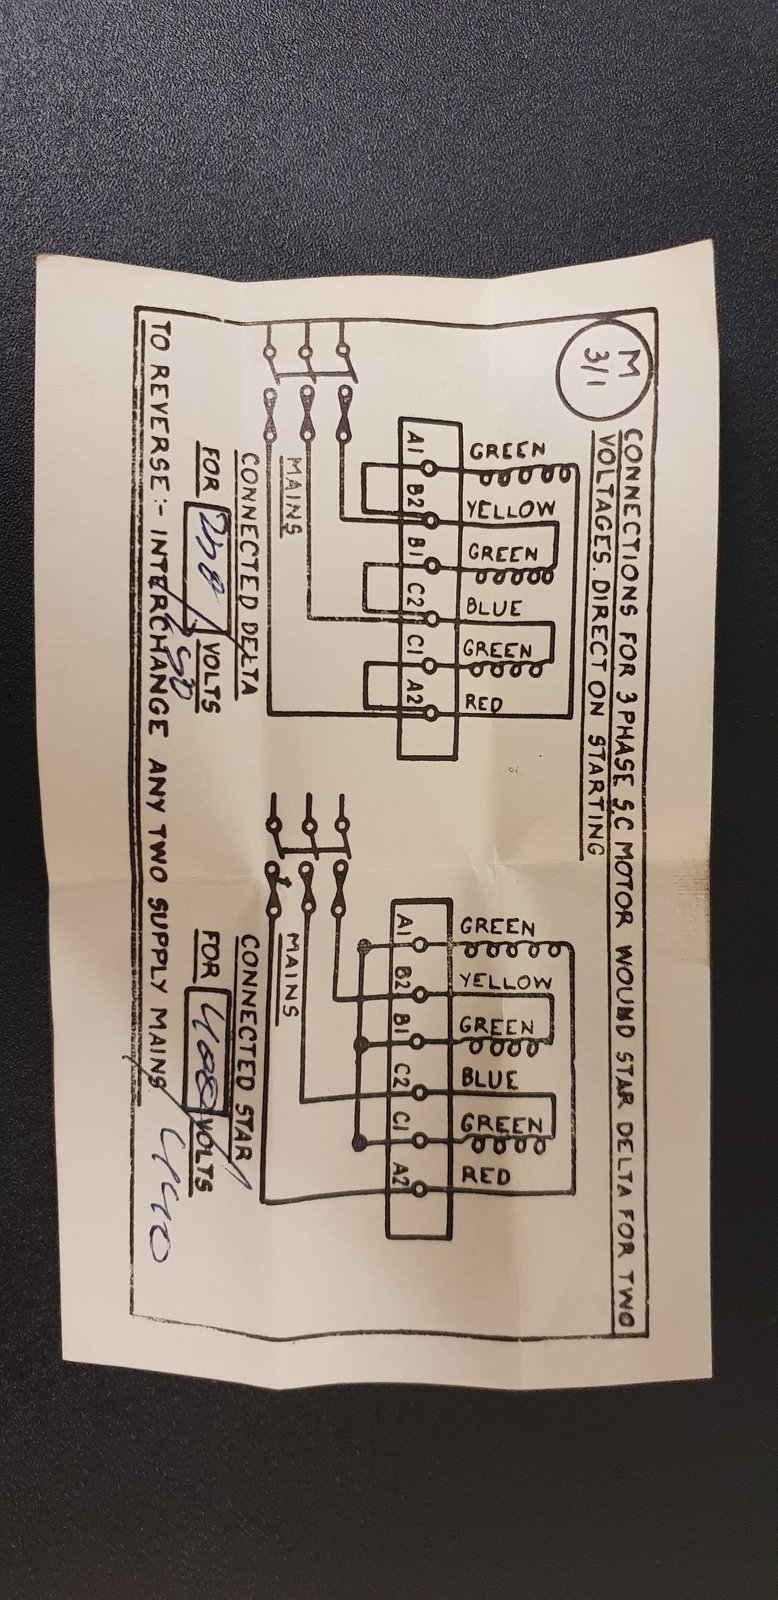 M
3/1
CONNECTIONS FOR 3 PHASE S.C MOTOR WOUND STAR DELTA FOR TWO
VOLTAGES. DIRECT ON STARTING
GREEN
YELLOW
GREEN
BLUE
GREEN
RED
A1 B2 B1 C2 C1 A2
MAINS
CONNECTED DELTA
FOR VOLTS
GREEN
YELLOW
GREEN
BLUE
GREEN
RED
A1 B2 B1 C2 C1 A2
MAINS
CONNECTED STAR
FOR 400/ VOLTS
440
TO REVERSE:- INTERCHANGE ANY TWO SUPPLY MAINS